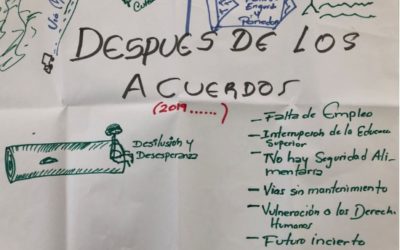 DESPUES DE LOS
ACUERDOS
(2019......)
Desilusión y
Desesperanza
- Falta de Empleo
- Interrupcion de la Educacion
Superior
- No hay Seguridad Ali-
mentaria
- Vias sin mantenimiento
- Vulneración a los Derech.
Humanos
- Futuro incierto